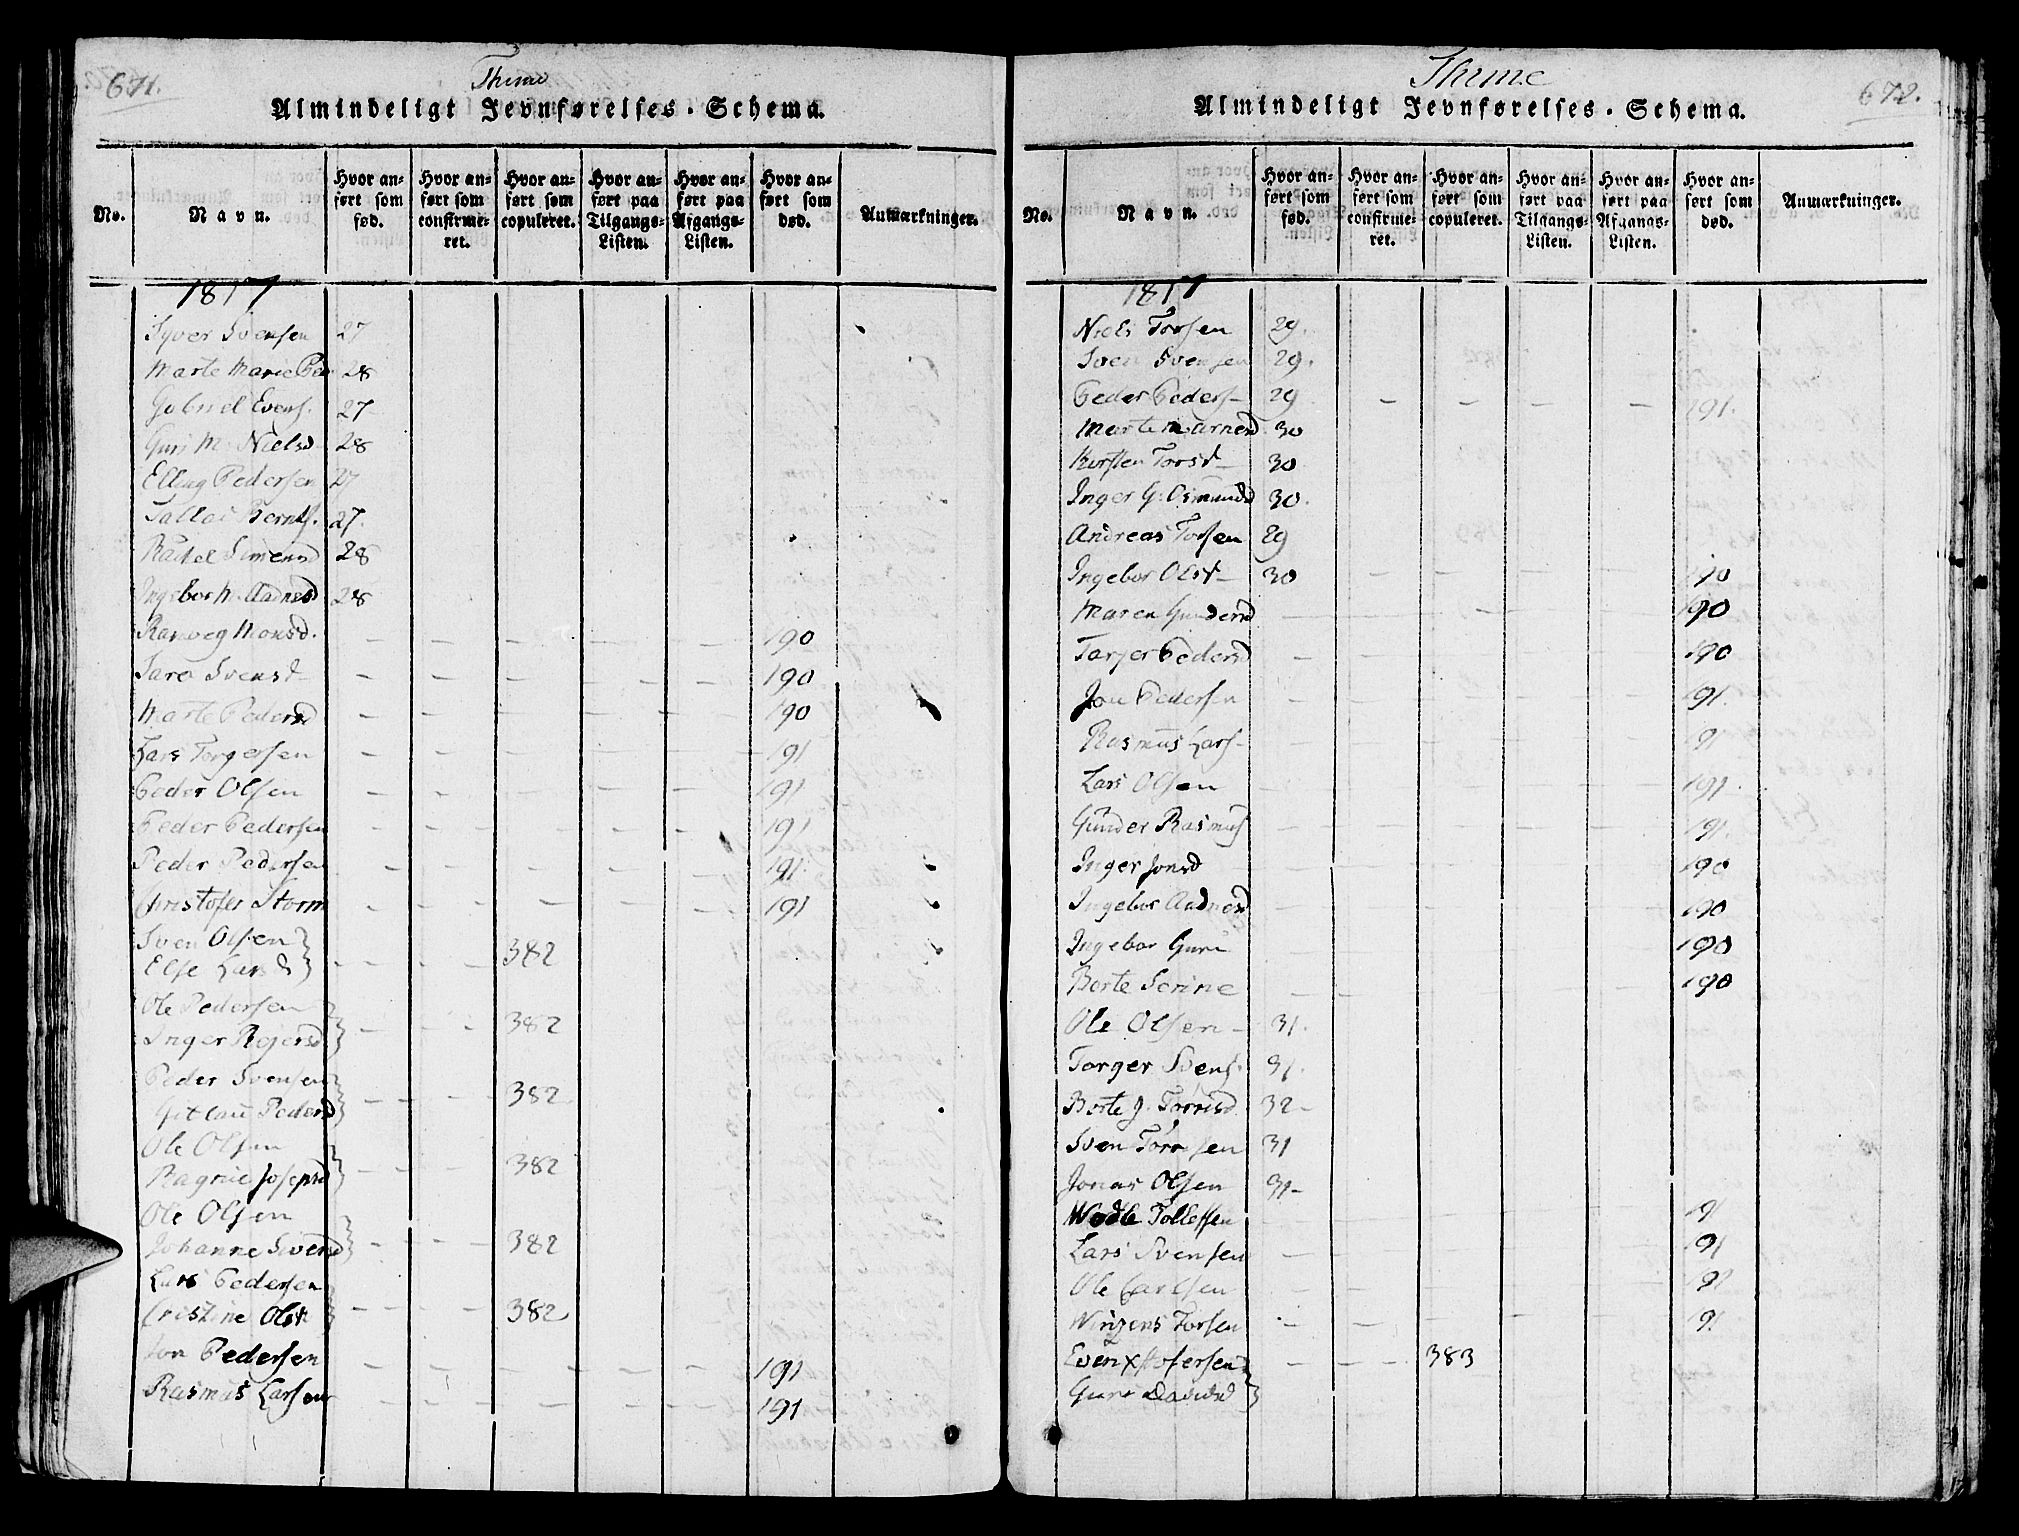 671.
Thime
Almindeligt Jevnførelses-Schema.
No.
Navn.
Hvor anført som fød.
Hvor anført som confirmeret.
Hvor anført som copuleret.
Hvor anført paa Tilgangs-Listen.
Hvor anført paa Afgangs-Listen.
Hvor anført som død.
Anmærkninger.
1817
Syver Svensen 27
Marte Marie Ped 28
Gabriel Evens. 27
Guri M. Nielsd 28
Elling Pedersen 27
Tallac Bernts. 27.
Rakel Simensd 28
Ingebor M. Aadnesd 28
Ranveg Monsd. - - - - - 190
Sara Svensd - - - - - 190
Marte Pedersd - - - - 190
Lars Torgersen - - - - 191
Peder Olsen - - - - - 191
Peder Pedersen - - - - - 191
Peder Pedersen - - - - 191.
Christofer Storm - - - - - 191
Sven Olsen }
Else Larsd } - - - 382
Ole Pedersen }
Inger Rejersd } - - - 382
Peder Svensen }
Pedersd } - - - 382
Ole Olsen }
Josepsd } - - - 382
Ole Olsen }
Johanne Svend } - - - 382
Lars Pedersen }
Cristine Olsd } - - - 382
Jon Pedersen - - - - - - 191
Rasmus Larsen - - - - - 191
672.
Thime
Almindeligt Jevnførelses-Schema.
No.
Navn.
Hvor anført som fød.
Hvor anført som confirmeret.
Hvor anført som copuleret.
Hvor anført paa Tilgangs-Listen.
Hvor anført paa Afgangs-Listen.
Hvor anført som død.
Anmærkninger.
1817
Niels Torsen 29.
Sven Svensen 29.
Peder Peders- 29 - - - - 191.
Marte Marie 30
Kirsten Torsd- 30
Inger G. Osmunds 30.
Andreas Torsen 29
Ingebor Olsd- 30 - - - - 190
Maren Gundersd - - - - - 190
Tarjer Pedersd - - - - 190
Jon Pedersen - - - - 191.
Rasmus Lars- - - - - 191
Lars Olsen - - - - 191
Gunder Rasmus - - - - 191.
Inger Jonsd - - - - 190
Ingebor Aadnesd - - - - 190
Ingebor Guri - - - - 190
Berte Serine - - 190
Ole Olsen- 31.
Torger Svens. 31.
Berte J. 32-
Sven 31
Jonas Olsen 31-
Wedle Tollefsen - - - - 91
Lars Svensen - - - - 91
Ole Carlsen - - - - 91
Torsen - - - - 91
Even Xstofersen } - - - 383
Guri Davidsd }